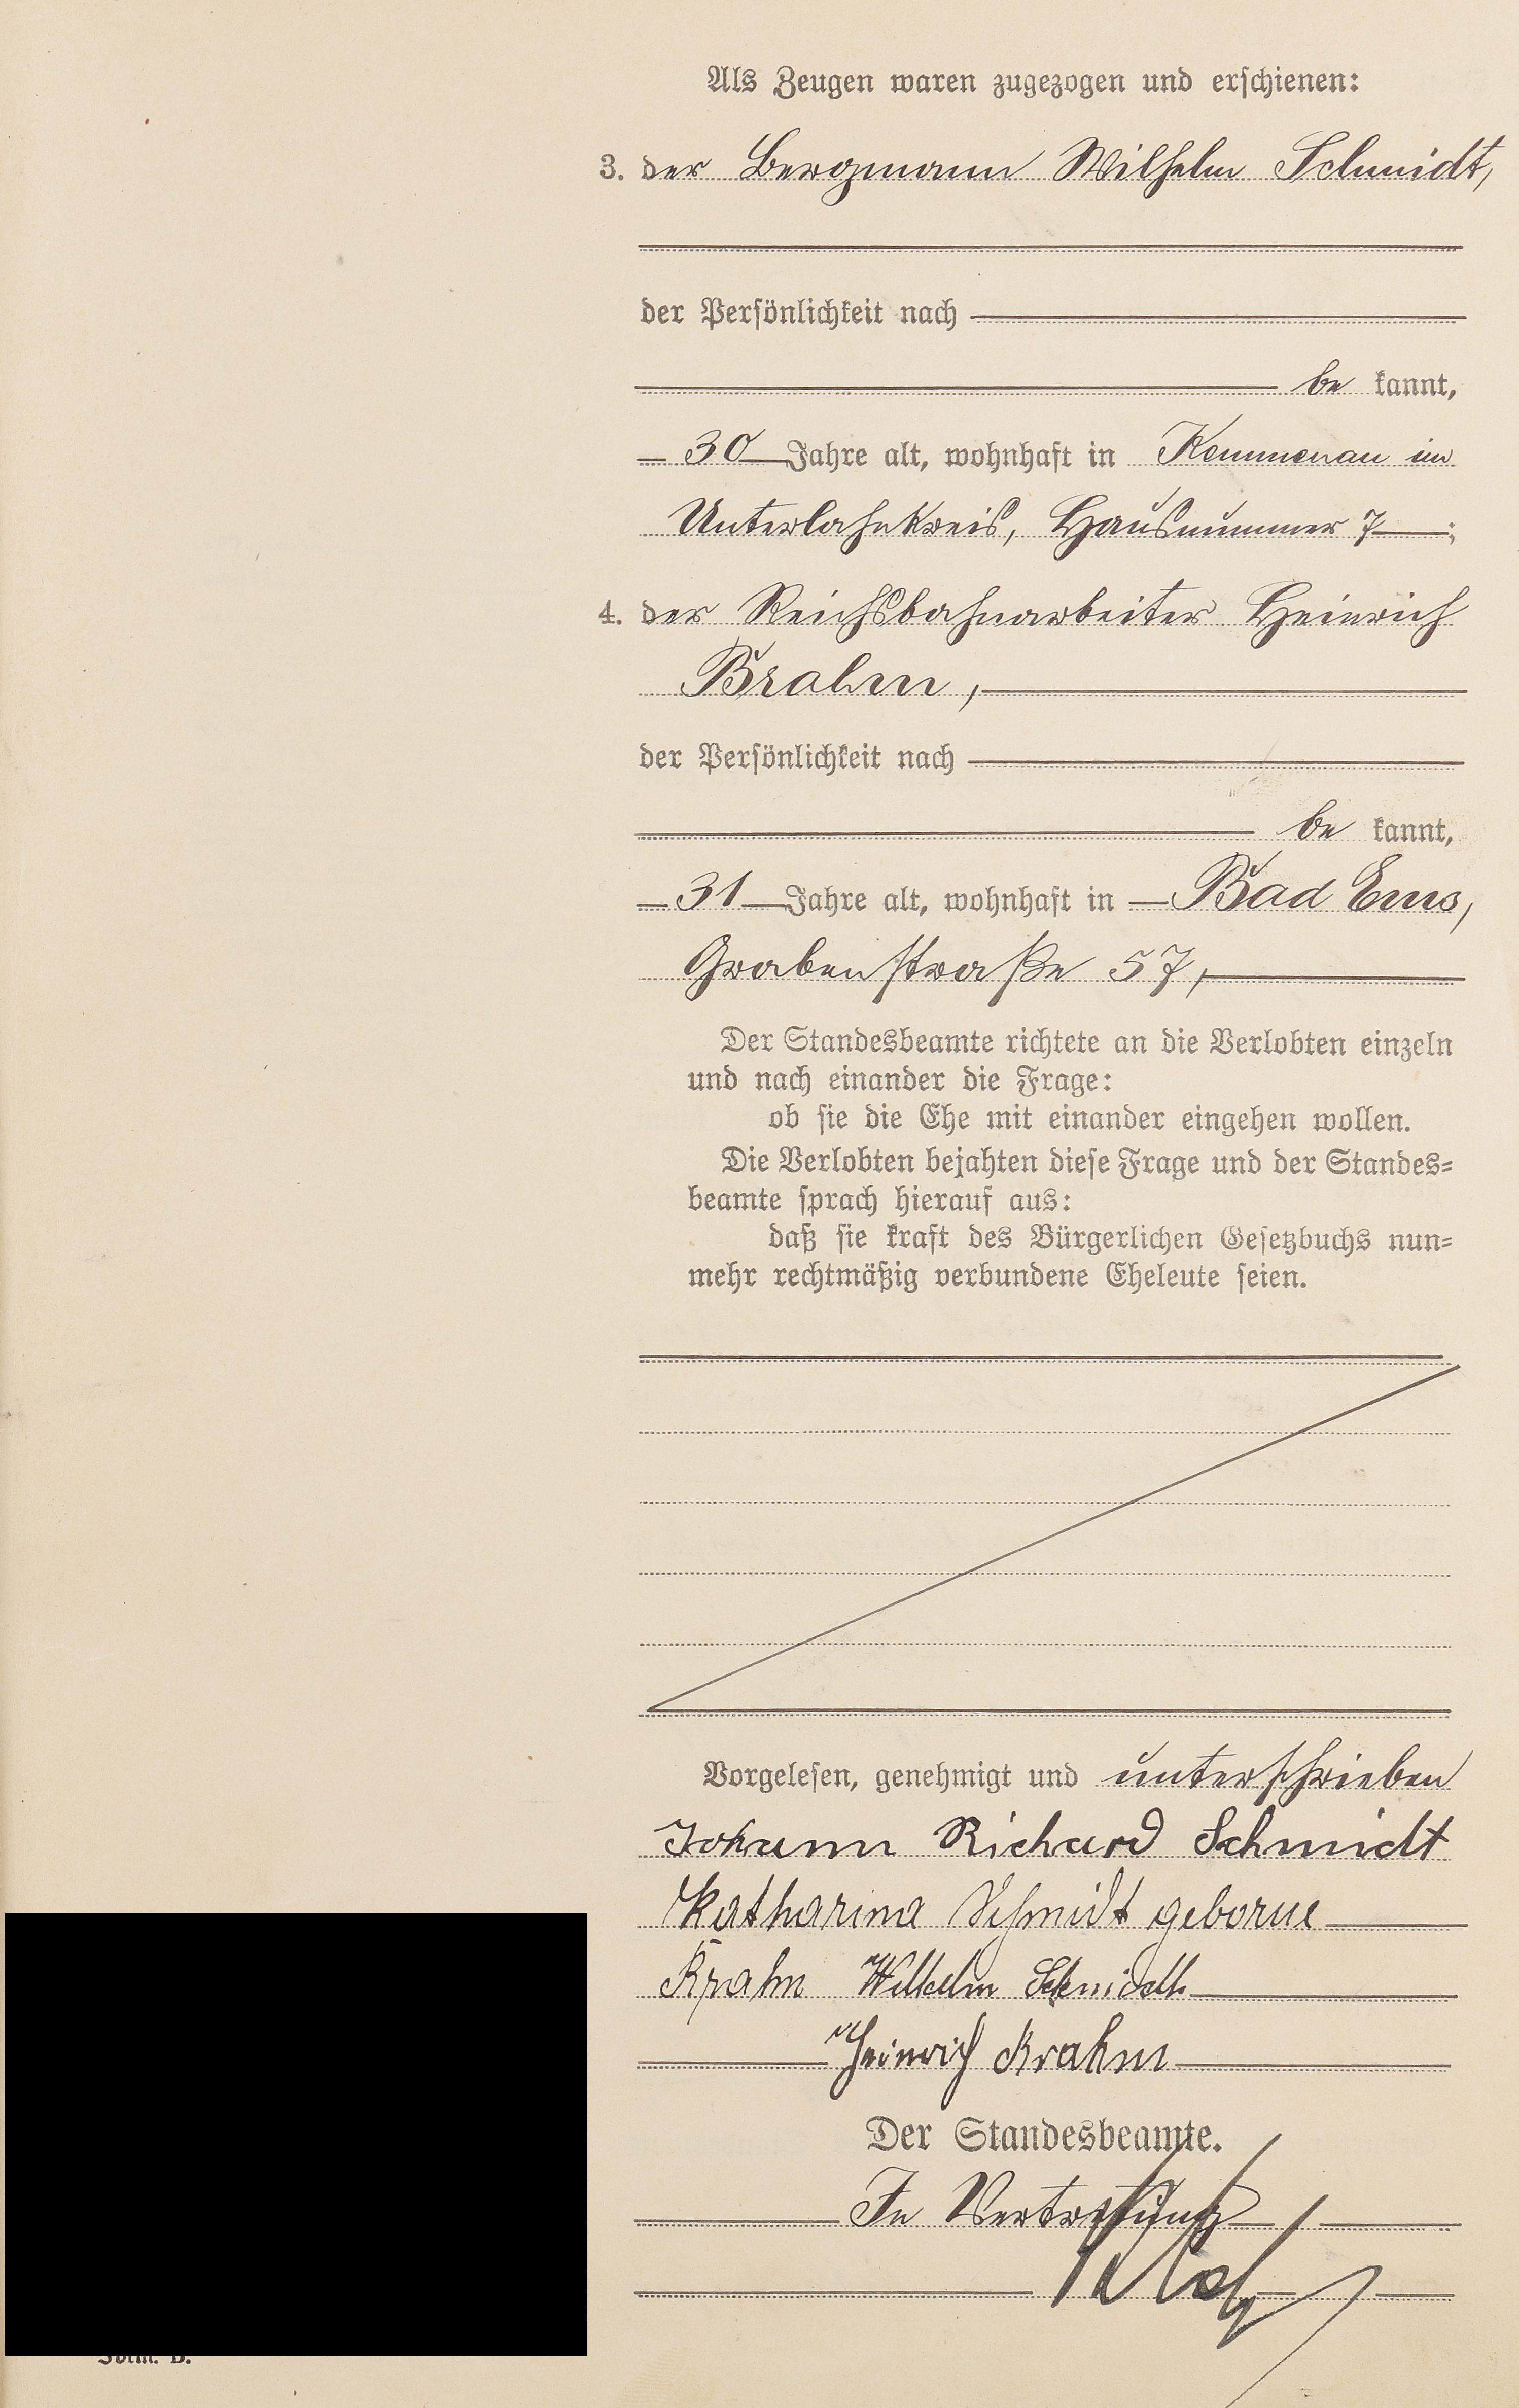 Als Zeugen waren zugezogen und erschienen:
3. der Bergmann Wilhelm Schmidt,
der Persönlichkeit nach
be kannt,
30 Jahre alt, wohnhaft in Kemmenau im
Unterlahnkreis, Hausnummer 7 ;
4. der Reichsbahnarbeiter Heinrich
Brahm,
der Persönlichkeit nach
be kannt,
31 Jahre alt, wohnhaft in Bad Ems,
Grabenstraße 57,
Der Standesbeamte richtete an die Verlobten einzeln
und nach einander die Frage:
ob sie die Ehe mit einander eingehen wollen.
Die Verlobten bejahten diese Frage und der Standes=
beamte sprach hierauf aus:
daß sie kraft des Bürgerlichen Gesetzbuchs nun=
mehr rechtmäßig verbundene Eheleute seien.
Vorgelesen, genehmigt und unterschrieben
Johann Richard Schmidt
Katharina Schmidt geborne
Brahm Wilhelm Schmidt
Heinrich Brahm
Der Standesbeamte.
In Vertretung